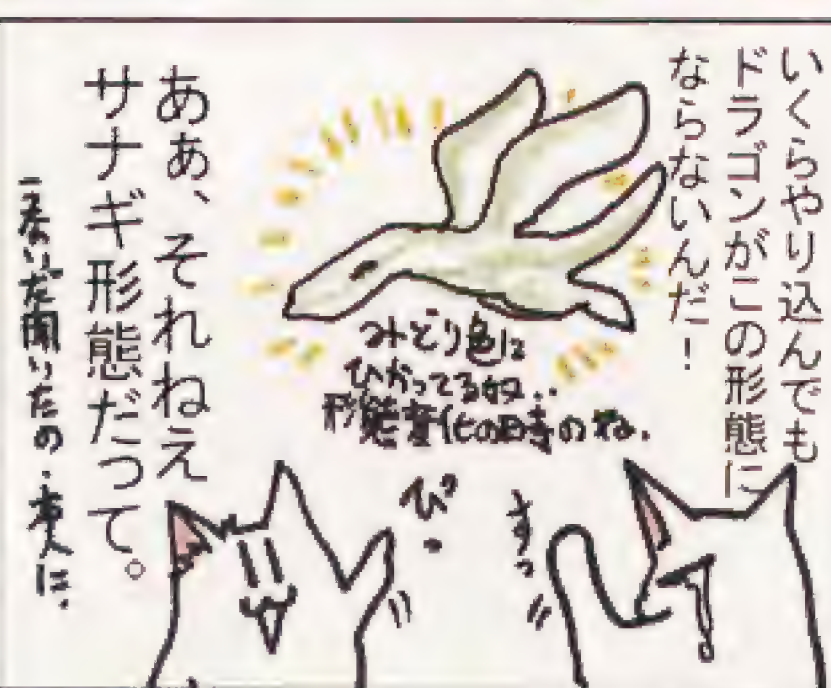 いくらやり込んでも
ドラゴンがこの形態に
ならないんだ!
みどり色に
ひかってる奴..
形態変化の時のね.
すっ
ぴっ
ああ、それねえ
サナギ形態だって。
聞いたの.本人に.